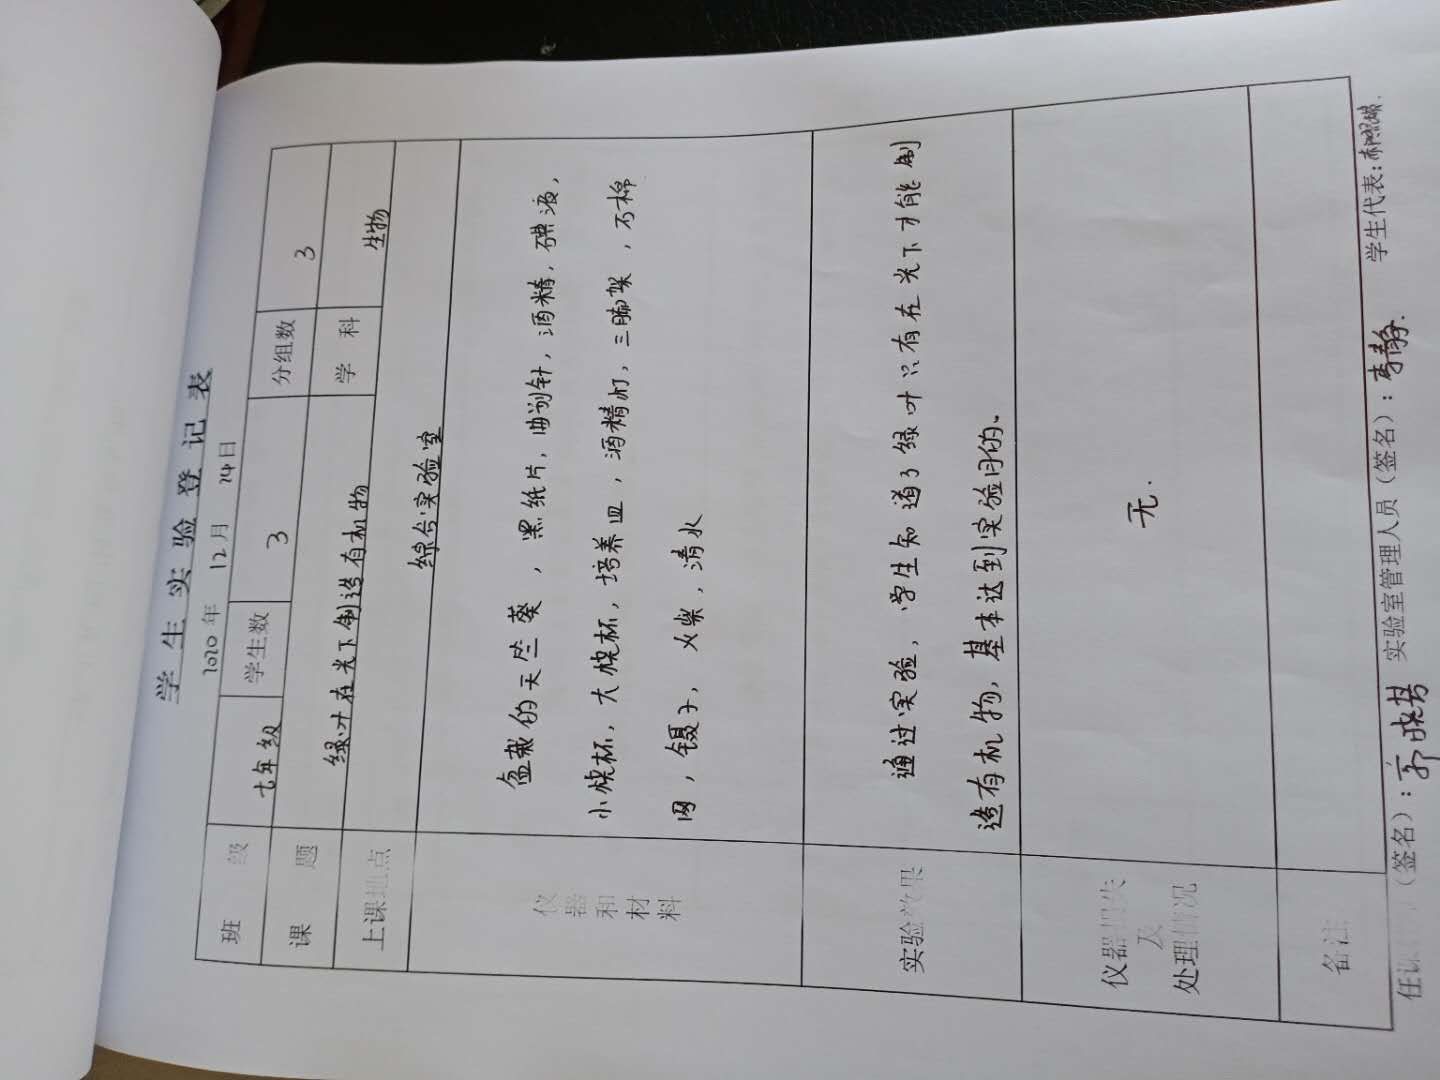 学生实验登记表
2020年 12月 24日
班级 七年级 学生数 3 分组数 3
课题 绿叶在光下制造有机物 学科 生物
上课地点 综合实验室
仪器和材料
盆栽的天竺葵，黑纸片，曲别针，酒精，碘液，
小烧杯，大烧杯，培养皿，酒精灯，三脚架，石棉
网，镊子，火柴，清水
实验效果
通过实验，学生知道了绿叶只有在光下才能制
造有机物，基本达到实验目的、
仪器损失
及
处理情况
无.
备注
(签名)：郭晓芬 实验室管理人员(签名)：李静. 学生代表：